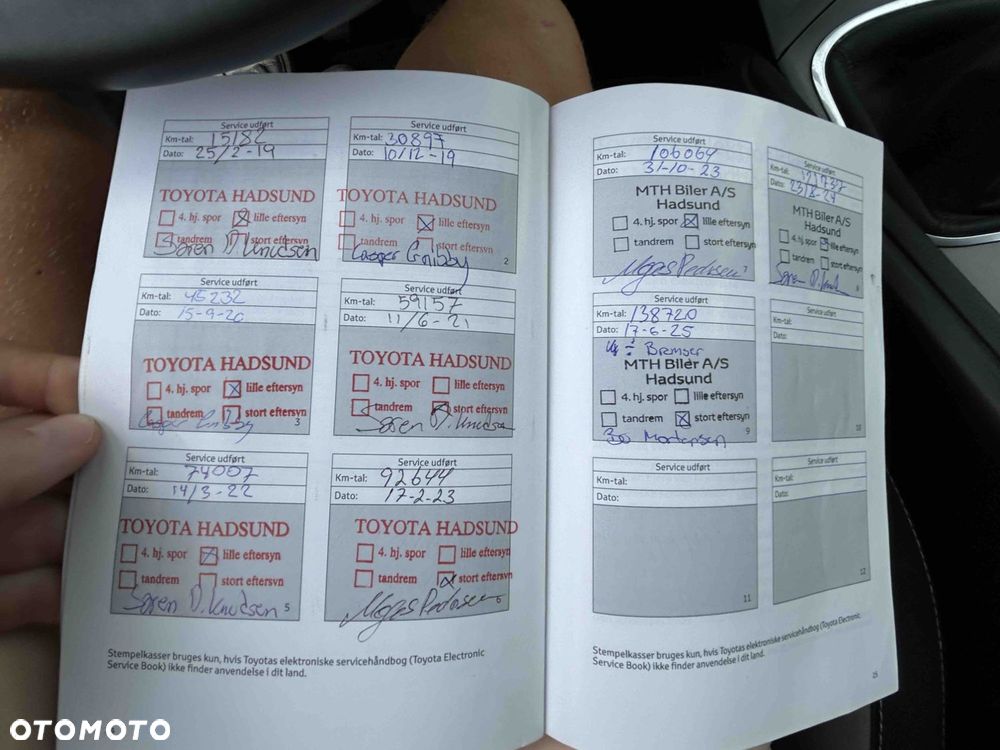 Service udført
Km-tal: 15182
Dato: 25/2-19
TOYOTA HADSUND
4. hj. spor lille eftersyn
tandrem stort eftersyn
Søren D. Knudsen
Service udført
Km-tal: 30897
Dato: 10/12-19
TOYOTA HADSUND
4. hj. spor lille eftersyn
tandrem stort eftersyn
Casper
2
Service udført
Km-tal: 45232
Dato: 15-9-20
TOYOTA HADSUND
4. hj. spor lille eftersyn
tandrem stort eftersyn
Casper
3
Service udført
Km-tal: 59157
Dato: 11/6-21
TOYOTA HADSUND
4. hj. spor lille eftersyn
tandrem stort eftersyn
Søren D. Knudsen
Service udført
Km-tal: 74007
Dato: 14/3-22
TOYOTA HADSUND
4. hj. spor lille eftersyn
tandrem stort eftersyn
Søren D. Knudsen 5
Service udført
Km-tal: 92644
Dato: 17-2-23
TOYOTA HADSUND
4. hj. spor lille eftersyn
tandrem stort eftersyn
6
Stempelkasser bruges kun, hvis Toyotas elektroniske servicehåndbog (Toyota Electronic
Service Book) ikke finder anvendelse i dit land.
Service udført
Km-tal: 106064
Dato: 31-10-23
MTH Biler A/S
Hadsund
4. hj. spor lille eftersyn
tandrem stort eftersyn
7
Service udført
Km-tal: 121737
Dato: 23/8-24
MTH Biler A/S
Hadsund
4. hj. spor lille eftersyn
tandrem stort eftersyn
Søren D. Knud 8
Service udført
Km-tal: 138720
Dato: 17-6-25
Bremser
MTH Biler A/S
Hadsund
4. hj. spor lille eftersyn
tandrem stort eftersyn
Bo Mortensen 9
Service udført
Km-tal:
Dato:
10
Service udført
Km-tal:
Dato:
11
Service udført
Km-tal:
Dato:
12
Stempelkasser bruges kun, hvis Toyotas elektroniske servicehåndbog (Toyota Electronic
Service Book) ikke finder anvendelse i dit land.
25
OTOMOTO